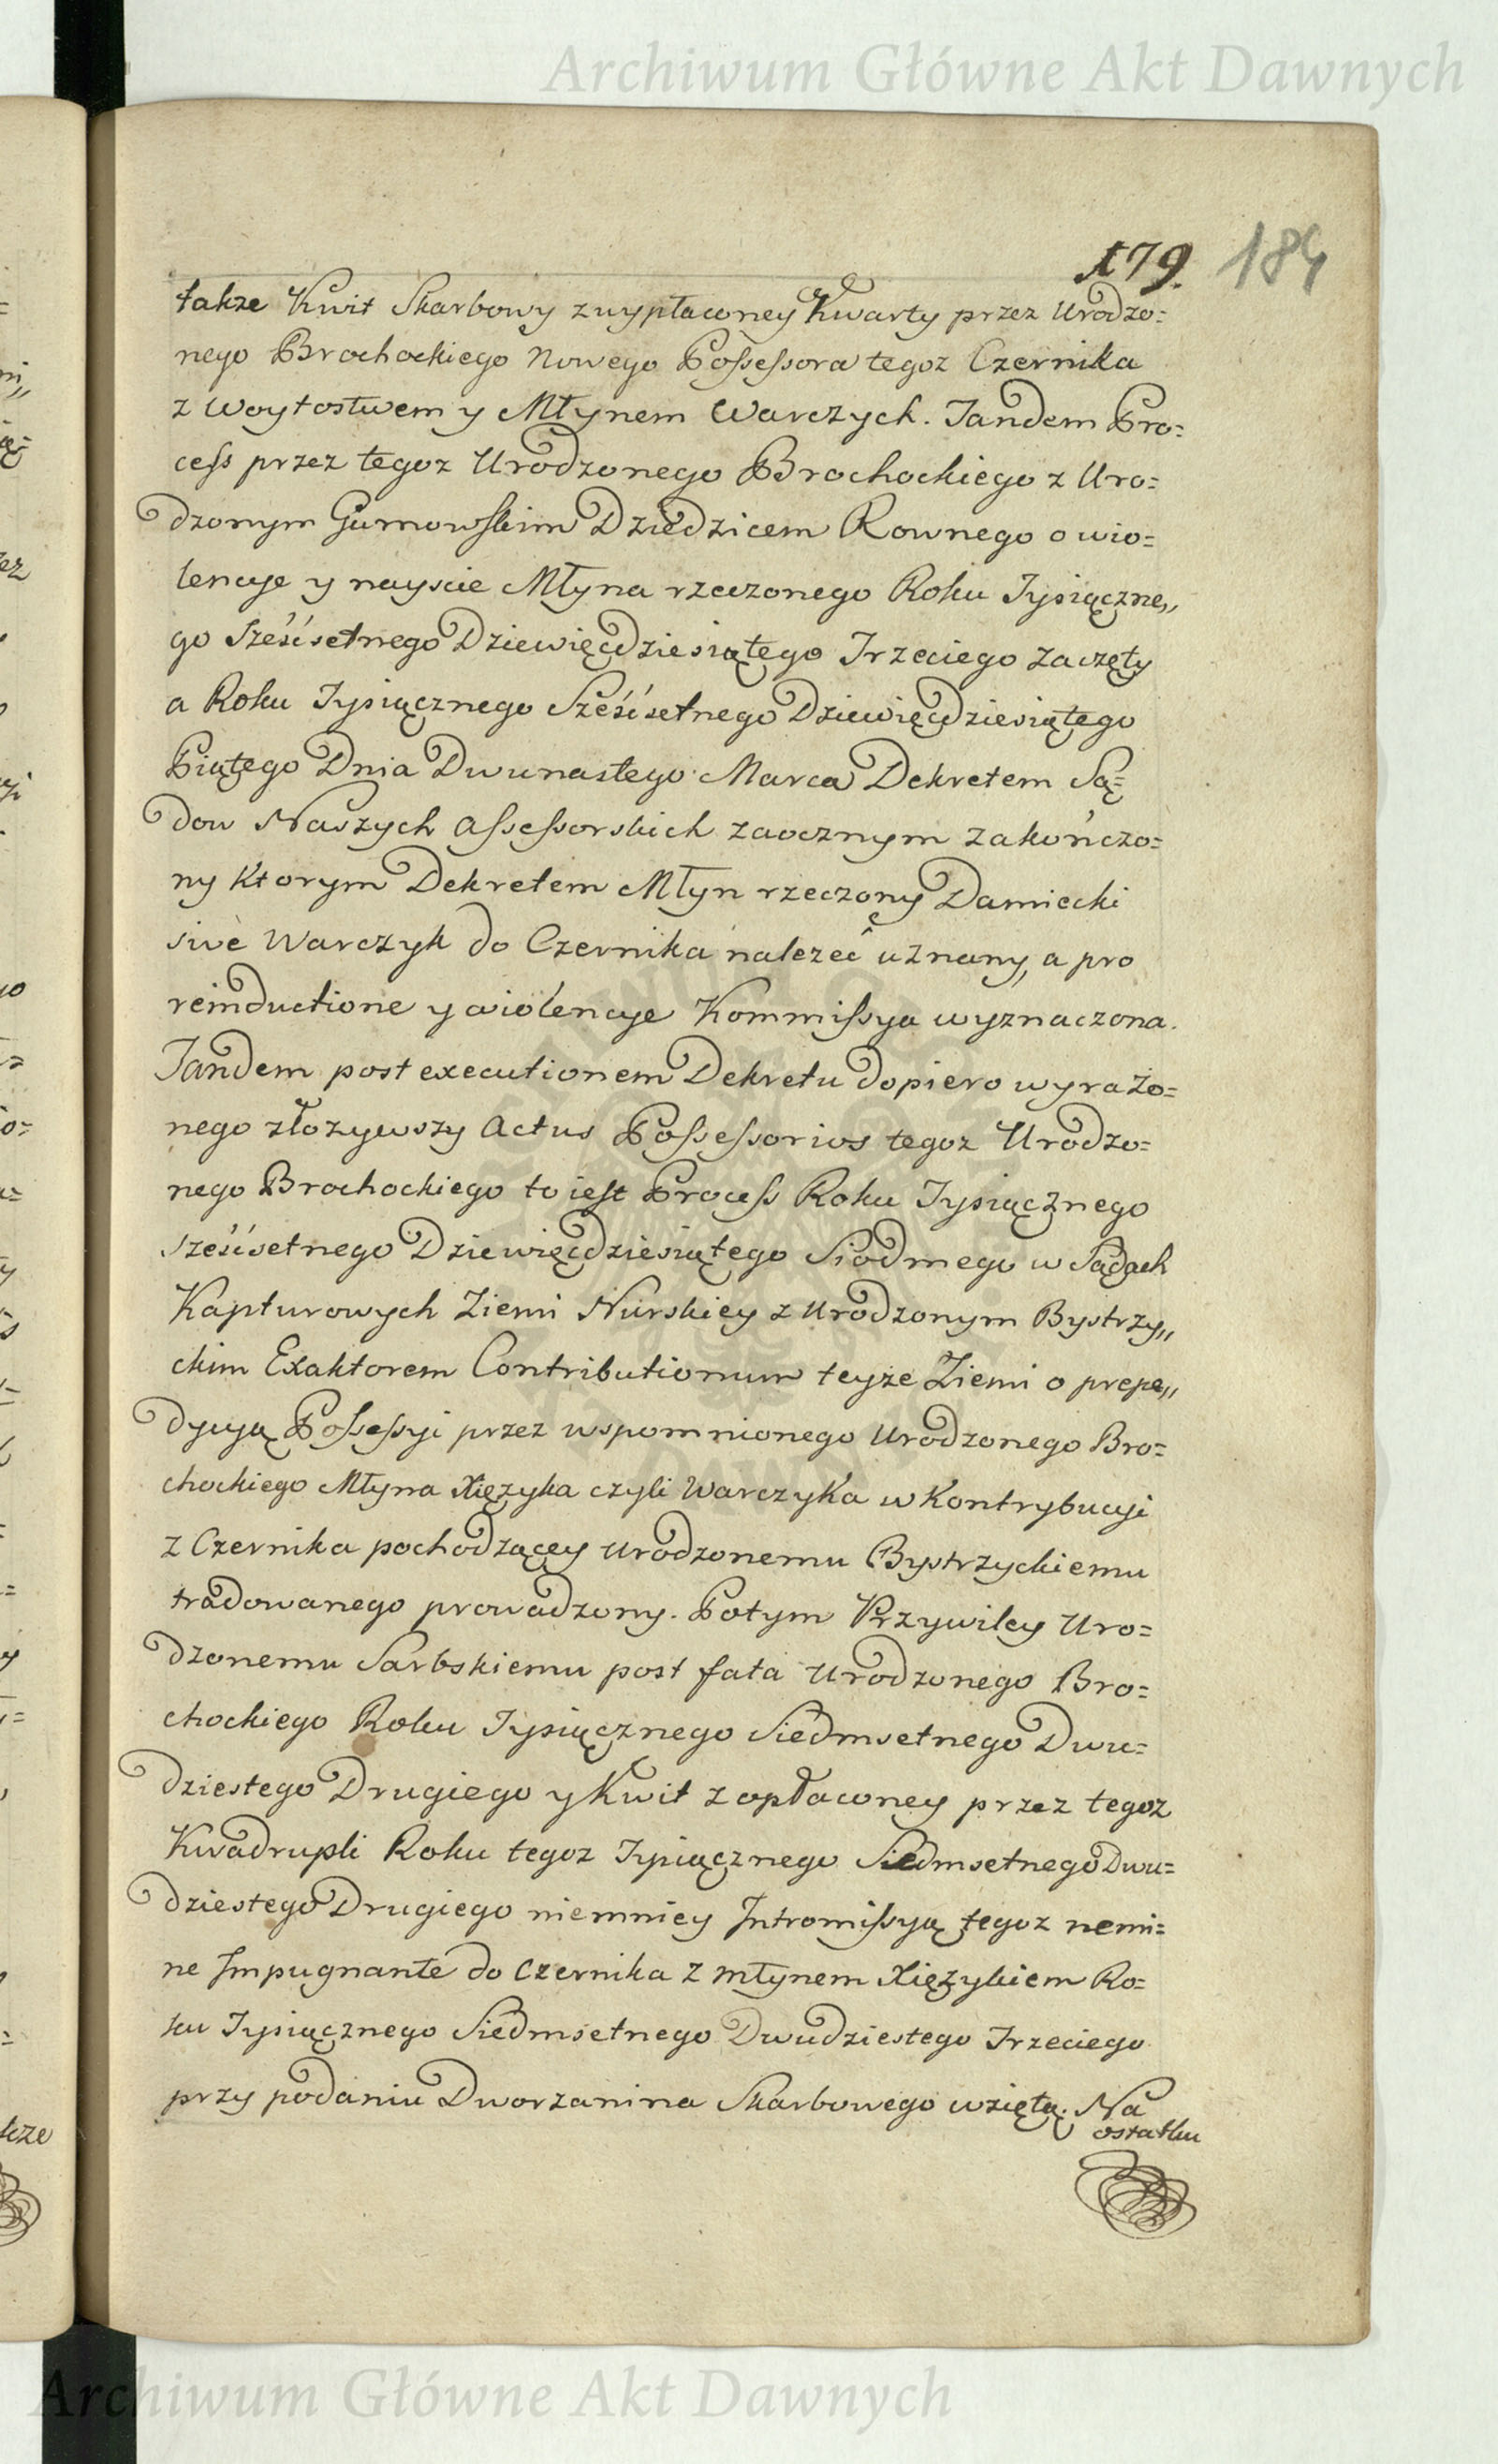 Archiwum Główne Akt Dawnych
179. 184
także Kwit Skarbowy z wypłaconey Kwarty przez Urodzo=
nego Brochockiego Nowego Possessora tegoz Czernika
z Woytostwem y Młynem Warczych. Tandem Pro=
cess przez tegoz Urodzonego Brochockiego z Uro=
dzonym Gumowskim Dziedzicem Rownego o wio=
lencye y nayscie Młyna rzeczonego Roku Tysiączne„
go Sześćsetnego Dziewięćdziesiątego Trzeciego zaczęty
a Roku Tysiącznego Sześćsetnego Dziewięćdziesiątego
Piątego Dnia Dwunastego Marca Dekretem Są=
dow Naszych Assessorskich zaocznym zakończo=
ny Ktorym Dekretem Młyn rzeczony Damiecki
sive Warczyk do Czernika należeć uznany, a pro
reinductione y wiolencye Kommissya wyznaczona.
Tandem post executionem Dekretu dopiero wyrażo=
nego złożywszy Actus Possessorios tegoz Urodzo=
nego Brochockiego to iest Process Roku Tysiącznego
Sześćsetnego Dziewięćdziesiątego Siodmego w Sądach
Kapturowych Ziemi Nurskiey z Urodzonym Bystrzy„
ckim Exaktorem Contributionum teyże Ziemi o prepe„
dycyą Possessyi przez wspomnionego Urodzonego Bro=
chockiego Młyna Xiężyka czyli Warczyka w Kontrybucyi
z Czernika pochodzącey Urodzonemu Bystrzyckiemu
tradowanego prowadzony. Potym Przywiley Uro=
dzonemu Sarbskiemu post fata Urodzonego Bro=
chockiego Roku Tysiącznego Siedmsetnego Dwu=
dziestego Drugiego y Kwit z opłaconey przez tegoz
Kwadrupli Roku tegoz Tysiącznego Siedmsetnego Dwu=
dziestego Drugiego niemniey Intromissyą tegoz nemi=
ne Impugnante do Czernika z młynem Xiężykiem Ro=
ku Tysiącznego Siedmsetnego Dwudziestego Trzeciego
przy podaniu Dworzanina Skarbowego wziętą. Na
ostatku
Archiwum Główne Akt Dawnych